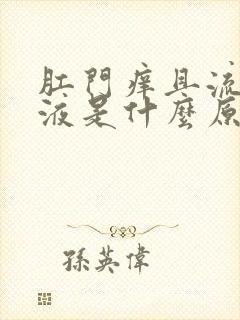 肛門痒且流
液是什麼原
孫英偉